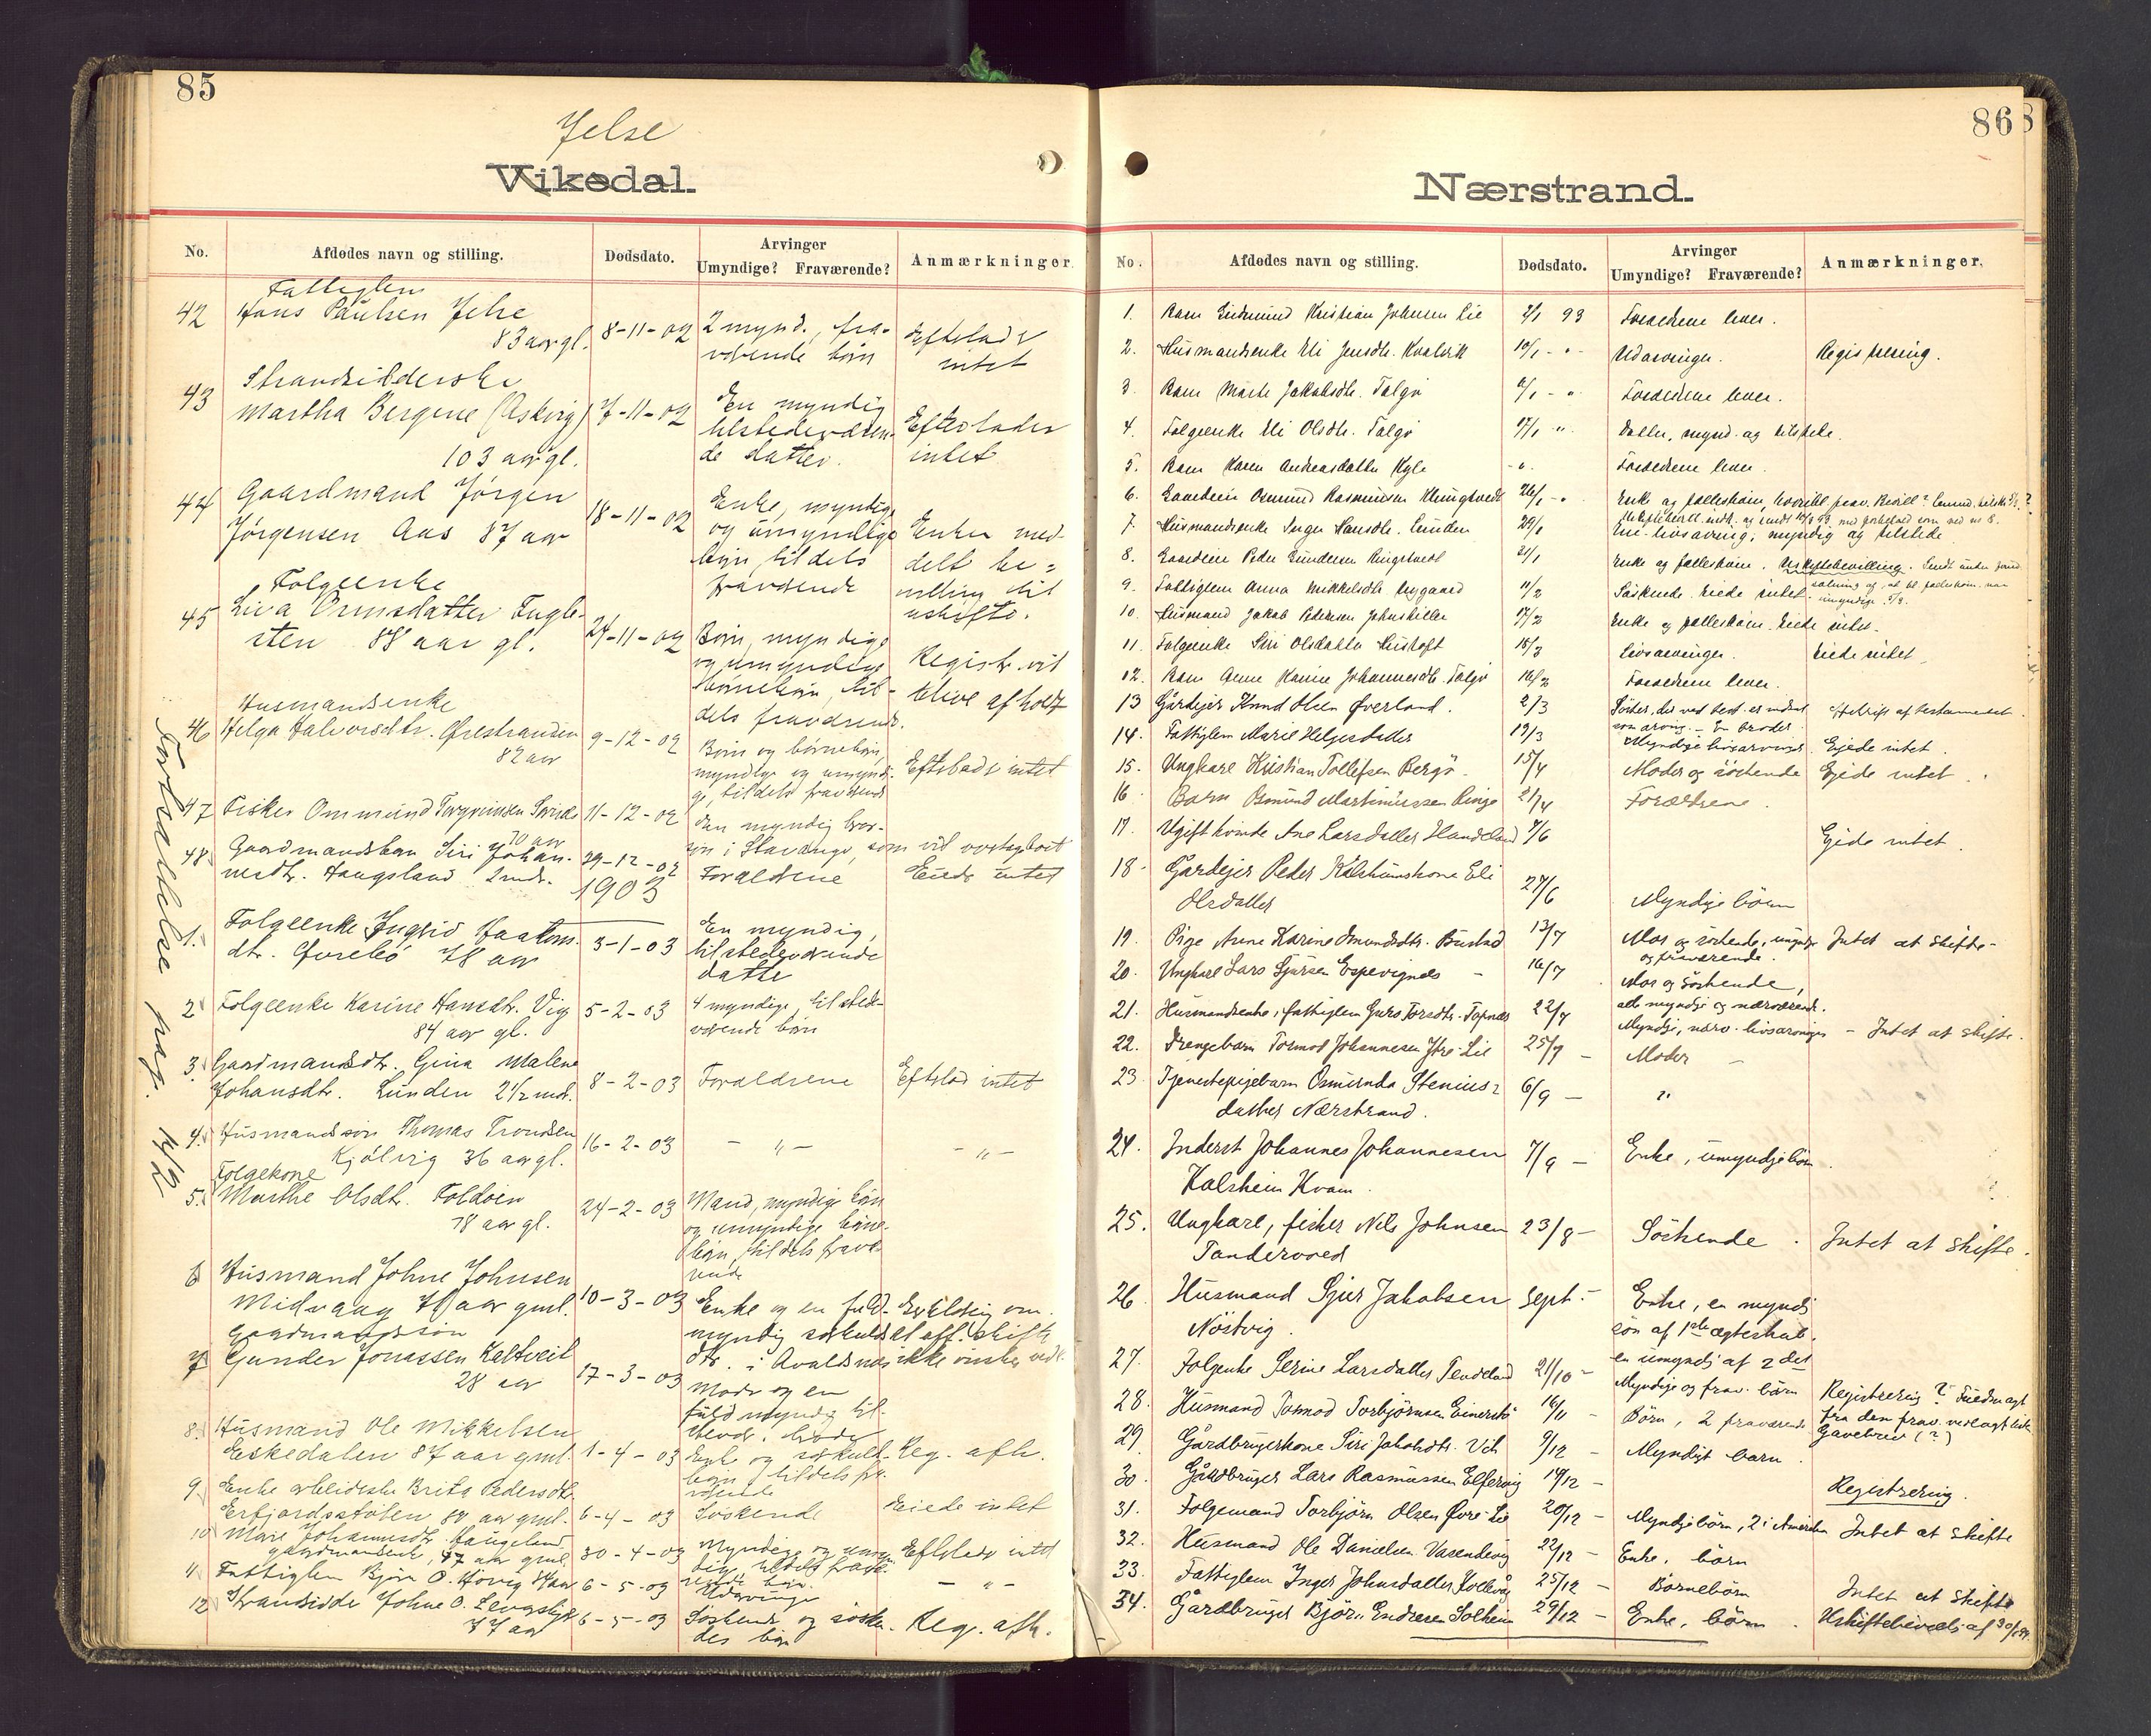 85
Jelse
Vikedal.
No.
Afdødes navn og stilling.
Dødsdato.
Arvinger
Umyndige? Fraværende?
Anmærkninger
42
Fattiglem
Hans Paulsen Jelse
83 aar gl.
8-11-02
2 mynd., fra-
værende børn
Efterlader
intet
43
Strandsidderske
Martha Bergene (Asberg)
103 aar gl.
7-11-02
En myndig
tilstedeværen-
de datter.
Efterlader
intet
44
Gaardmand Jørgen
Jørgensen Aas 87 aar
18-11-02
Enke, myndige
og umyndige
børn, tildels
fraværende
Enken med-
delt be-
villing til
uskifte.
45
Folgeenke
Liva Ormsdatter Fugle-
sten 88 aar gl.
24-11-02
Børn, myndige
og umyndige
børnebørn, til-
dels fraværende.
Registr. vil
blive afholdt
46
Husmandsenke
Helga Halvorsdtr. Ørestranden
82 aar
9-12-02
Børn og børnebørn,
myndige og umyndi-
ge, tildels fraværende
Efterlader intet
47
Fisker Ommund Torgrimsen
70 aar
11-12-02
den myndig bror-
søn i Stavanger, som vil
48
Gaardmandsbarn Siri Johan-
nesdtr. Haugsland 2 mdr.
29-12-02
Forældrene
Eiede intet
1903
1.
Folgeenke Ingrid
dtr. 78 aar
3-1-03
En myndig,
tilstedeværende
datter
2
Folgeenke Karine Hansdtr. Vig
84 aar gl.
5-2-03
4 myndige, tilstede-
værende børn
3.
Gaardmandsdtr. Gina Malene
Johansdtr. Lunden 2 1/2 md.
8-2-03
Forældrene
Efterlod intet
4.
Husmandssøn Thomas Trondsen
Kjølvig 36 aar gl.
16-2-03
- " -
- " -
5.
Folgekone
Marthe Olsdtr. Foldøen
78 aar gl.
24-2-03
Mand, myndige børn
og umyndige børne-
børn, tildels fravæ-
rende
6
Husmand Johne Johnsen
Midvaag 76 aar gml.
10-3-03
Enke og en fuld-
myndig
dtr. i Avaldsnes
7
Gaardmandssøn
Gunder Jonassen Kaltveit
28 aar
17-3-03
Moder og en
fuldmyndig til-
8.
Husmand Ole Mikkelsen
Eskedalen 87 aar gml.
1-4-03
Enke og
børn, tildels fra-
værende
Reg. afh.
9
Enke Brita Pedersdtr.
Erfjordsstølen 80 aar gml.
6-4-03
Søskende
Eiede intet
10
Mari Johannesdtr. Haugeland
87 aar gml.
30-4-03
Myndige og umyn-
dige, tildels fravæ-
rende børn.
Efterlader intet
11
Fattiglem Bjørn O. Høvig
6-5-03
Udarvinger
- " -
12
Strandsidder Johne O.
77 aar
6-5-03
Søskende og søsken-
des børn
Reg. afh.
Fortsættelse pag. 142
86
Nærstrand.
No.
Afdødes navn og stilling.
Dødsdato.
Arvinger
Umyndige? Fraværende?
Anmærkninger.
1.
Barn Gudmund Kristian Johnsen Lie
2/1 93
Forældrene lever.
2.
Husmandsenke Eli Jensdtr. Kvalvik
10/1 - " -
Udarvinger.
Registrering.
3.
Barn Marte Jakobsdtr. Talgø
Forældrene lever.
4.
Folgeenke Eli Olsdtr. Talgø
17/1 "
Datter, mynd. og tilstede.
5.
Barn Karen Andreasdatter Hyle
- " -
Forældrene lever.
6.
Gaardeier Osmund Rasmussen
26/1 - "
Enke og fællesbørn,
7.
Husmandsenke Inger Hansdtr. Lunden
29/1
Ene-livsarving, myndig og tilstede
8.
Gaardeier Peder Gundersen Ringstveit
21/1
Enke og fællesbørn. Uskiftebevilling.
9.
Fattiglem Anna Mikkelsdtr. Nygaard
11/2
Søskende. Eiede intet.
10.
Husmand Jakob Pedersen
17/2
Enke og fællesbørn. Eiede intet.
11.
Folgeenke Siri Olsdatter Hustoft
15/3
Livsarvinger.
Eiede intet
12.
Barn Anne Karine Johannesdtr. Talgø
16/2
Forældrene lever.
13
Gårdejer Knud Olsen Øverland.
2/3
Søster, der ved test. er indsat
som arving. - En broder
Afskrift af testamentet.
14.
Fattiglem Marie Helgesdatter
19/3
Myndige livsarvinger.
Ejede intet.
15.
Ungkarl Kristian Tollefsen Bergø.
15/4
Moder og søskende
Ejede intet.
16
Barn Osmund Martinussen Ringe
21/4
Forældrene.
17.
Ugift kvinde Ane Larsdatter Handeland
9/6
Ejede intet.
18
Gårdejer Peder Kålshuuskone Eli
Olsdatter
27/6
Myndige børn
19.
Pige Anne Karine Osmundsdtr. Bustad
13/7
Mor og søskende, umynd.
og fraværende.
Intet at skifte.
20.
Ungkarl Lars Sjursen Espevignæs
16/7
Mor og søskende,
alle myndige og nærværende.
21.
Husmandsenke, fattiglem Guro Torsdtr. Topnæs
22/7
Myndige, nærv. livsarvinger
- Intet at skifte.
22.
Drengebarn Tormod Johannesen Ytre-Lie
25/7 -
Moder -
23.
Tjenestepigebarn Osmunda Stenius-
datter Nærstrand.
6/9 -
"
24.
Inderst Johannes Johannesen
Kalsheim Kvam.
7/9 -
Enke, umyndige børn.
25.
Ungkarl, fisker Nils Johnsen
Tandervold
23/8 -
Søskende.
Intet at skifte.
26
Husmand Sjur Jakobsen
Nøstvig.
Sept. -
Enke, en myndig
søn af 1ste ægteskab.
en umyndig af 2det
27.
Folgeenke Serine Larsdatter Tendeland
21/10 -
Myndige og frav. børn
Registrering?
28.
Husmand Tormod Torbjørnsen
16/11 -
Børn, 2 fraværende
Gavebrev (?)
29.
Gårdbrugerkone Siri Jakobsdtr. Vik
9/12 -
Myndigt barn.
30.
Gårdbruger Lars Rasmussen
14/12 -
Registrering.
31.
Folgemand Torbjørn Olsen Øvre-Lie
20/12 -
Myndige børn, 2 i Amerika
Intet at skifte
32.
Husmand Ole Danielsen
22/12 -
Enke, børn
33.
Fattiglem Inger Johnsdatter
25/12 -
Børnebørn
Intet at skifte
34.
Gårdbruger Bjørn Endresen Solheim
29/12 -
Enke, børn.
Uskiftebevilling af